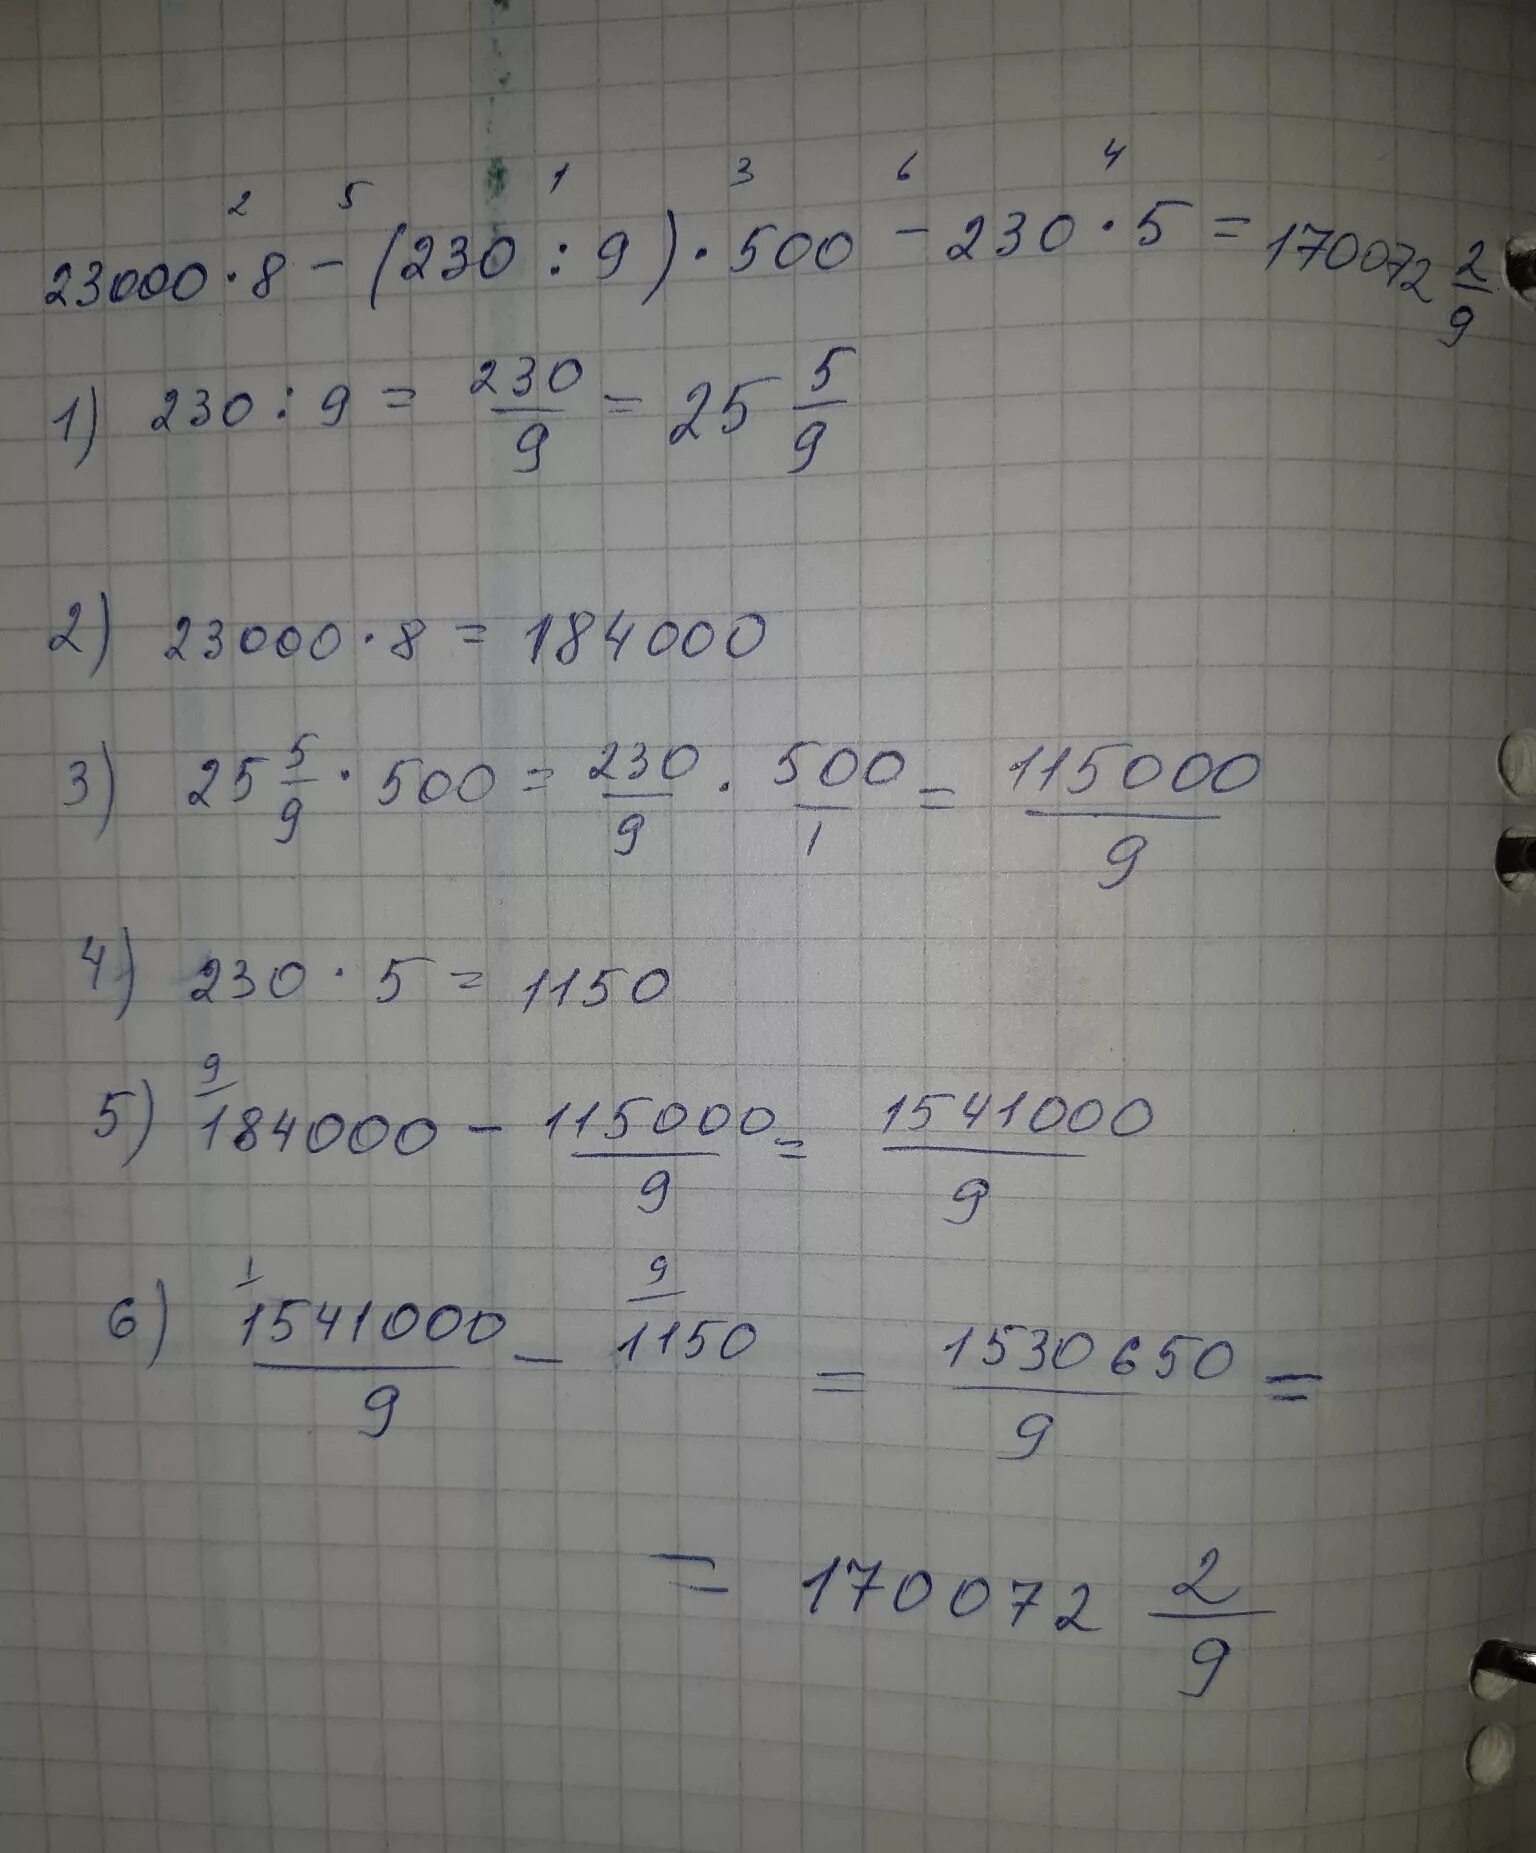 2 5 1 3 6 4
23000 · 8 - (230 : 9) · 500 - 230 · 5 = 170072 2/9
1) 230 : 9 = 230/9 = 25 5/9
2) 23000 · 8 = 184000
3) 25 5/9 · 500 = 230/9 · 500/1 = 115000/9
4) 230 · 5 = 1150
9
5) 184000 - 115000/9 = 1541000/9
1 9
6) 1541000/9 - 1150 = 1530650/9 =
= 170072 2/9